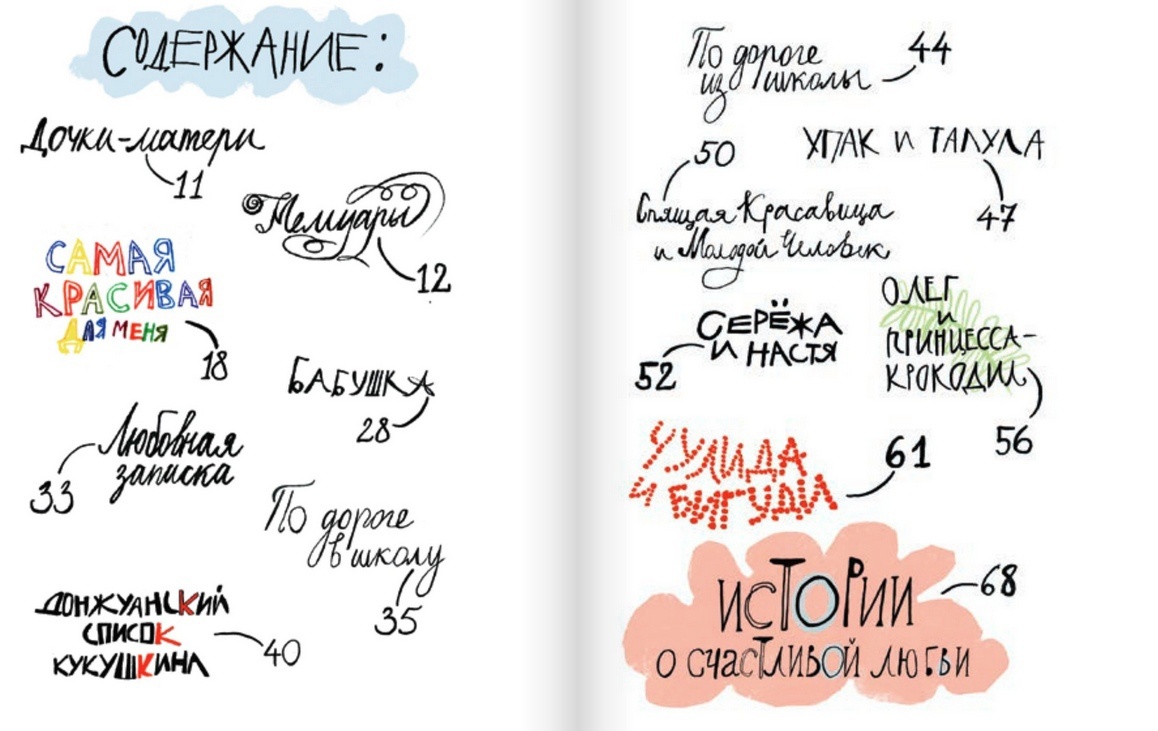 СОДЕРЖАНИЕ:
Дочки-матери
11
Мемуары
12
САМАЯ
КРАСИВАЯ
ДЛЯ МЕНЯ
18
БАБУШКА
28
Любовная
записка
33
По дороге
в школу
35
ДОНЖУАНСКИЙ
СПИСОК
КУКУШКИНА
40
По дороге
из школы
44
УПАК И ТАЛУЛА
47
50
Спящая Красавица
и Молодой Человек
СЕРЁЖА
И НАСТЯ
52
ОЛЕГ
и
ПРИНЦЕССА-
КРОКОДИЛ
56
ЧУЛИДА
И БИГУДИ
61
ИСТОРИИ
О СЧАСТЛИВОЙ ЛЮБВИ
68